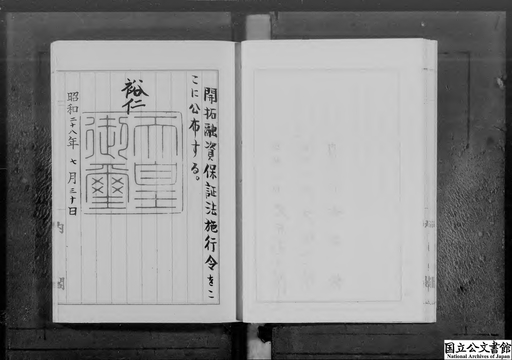 開拓融資保証法施行令をこ
こに公布する。
裕仁
天皇
御璽
昭和二十八年七月三十日
内閣
国立公文書館
National Archives of Japan